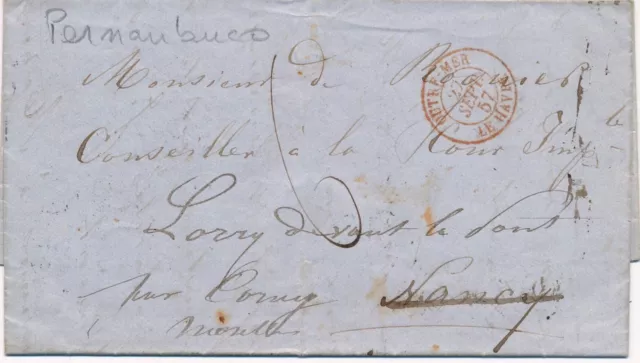 Pernanbuco
Monsieur de
OUTRE-MER LE HAVRE
SEPT
57
Conseiller à la Cour Imp le
6
Lorry devant le Pont
par Corny Nancy
Moselle